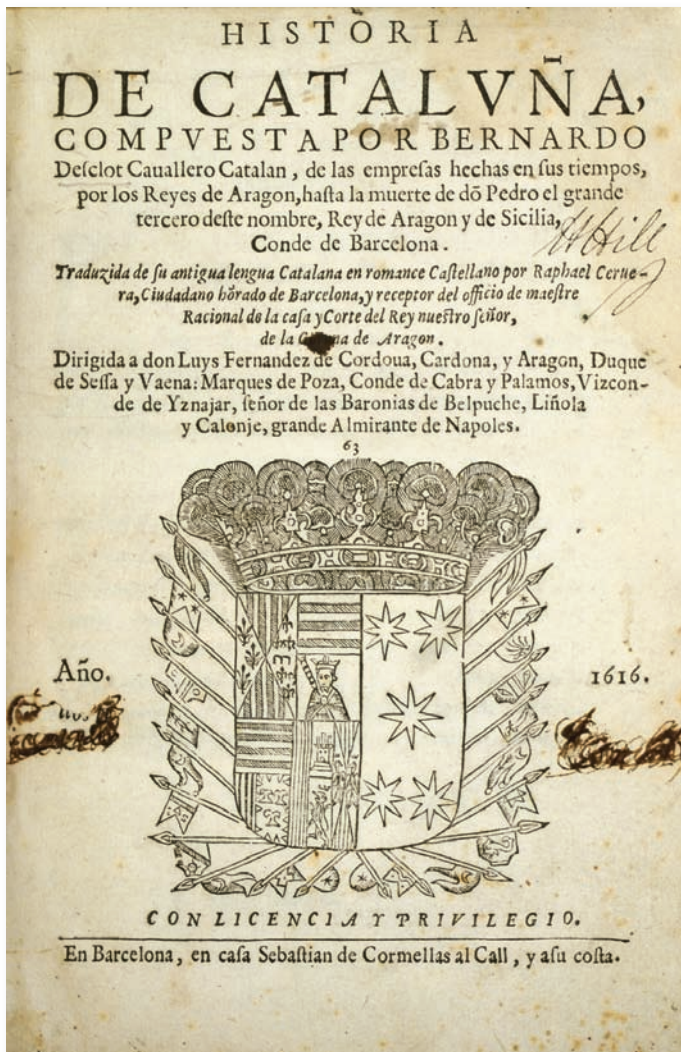 HISTORIA
DE CATALVÑA,
COMPVESTA POR BERNARDO
Deſclot Cauallero Catalan, de las empreſas hechas en ſus tiempos,
por los Reyes de Aragon, haſta la muerte de dõ Pedro el grande
tercero deſte nombre, Rey de Aragon y de Sicilia,
Conde de Barcelona.
Hill
Traduzida de ſu antigua lengua Catalana en romance Caſtellano por Raphael Cerue-
ra, Ciudadano hõrado de Barcelona, y receptor del officio de maeſtre
Racional de la caſa y Corte del Rey nueſtro ſeñor,
de la na de Aragon.
Dirigida a don Luys Fernandez de Cordoua, Cardona, y Aragon, Duque
de Seſſa y Vaena: Marques de Poza, Conde de Cabra y Palamos, Vizcon-
de de Yznajar, ſeñor de las Baronias de Belpuche, Liñola
y Calonje, grande Almirante de Napoles.
63
Año. 1616.
CON LICENCIA Y PRIVILEGIO.
En Barcelona, en caſa Sebaſtian de Cormellas al Call, y aſu coſta.